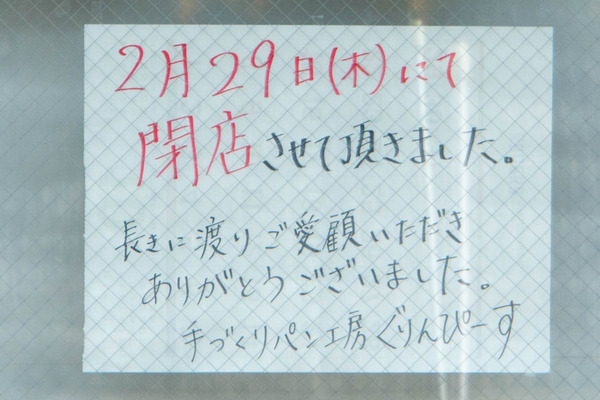 2月29日(木)にて
閉店させて頂きました。
長きに渡りご愛顧いただき
ありがとうございました。
手づくりパン工房ぐりんぴーす